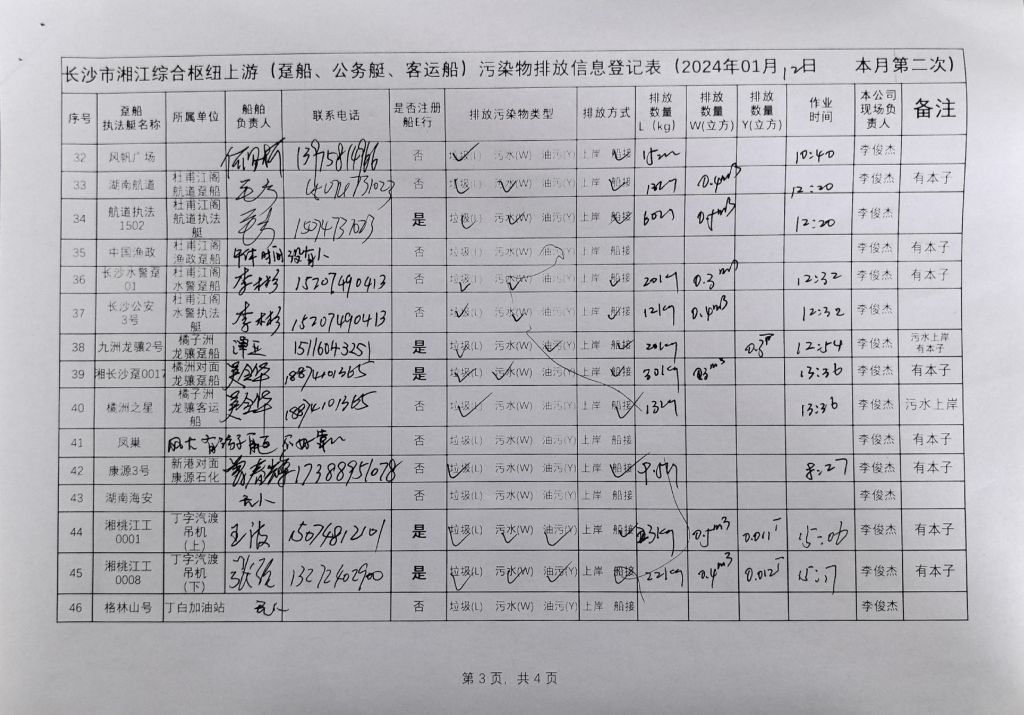 长沙市湘江综合枢纽上游（趸船、公务艇、客运船）污染物排放信息登记表（2024年01月12日 本月第二次）
序号 趸船执法艇名称 所属单位 船舶负责人 联系电话 是否注册船E行 排放污染物类型 排放方式 排放数量L（kg） 排放数量W(立方) 排放数量Y(立方) 作业时间 本公司现场负责人 备注
32 风帆广场 否 垃圾(L) 污水(W) 油污(Y) 上岸 船接 10:40 李俊杰
33 湖南航道 杜甫江阁航道趸船 否 垃圾(L) 污水(W) 油污(Y) 上岸 船接 0.4m3 12:20 李俊杰 有本子
34 航道执法1502 杜甫江阁航道执法艇 15074731023 是 垃圾(L) 污水(W) 油污(Y) 上岸 船接 12:20 李俊杰
35 中国渔政 杜甫江阁渔政趸船 时间没有人 否 垃圾(L) 污水(W) 油污(Y) 上岸 船接 李俊杰 有本子
36 长沙水警趸01 杜甫江阁水警趸船 李彬彬 15207490413 否 垃圾(L) 污水(W) 油污(Y) 上岸 船接 20kg 0.3m3 12:32 李俊杰 有本子
37 长沙公安3号 杜甫江阁水警执法艇 李彬彬 15207490413 否 垃圾(L) 污水(W) 油污(Y) 上岸 船接 12kg 0.4m3 12:32 李俊杰
38 九洲龙骧2号 橘子洲龙骧趸船 15116043251 是 垃圾(L) 污水(W) 油污(Y) 上岸 船接 20kg 12:54 李俊杰 污水上岸有本子
39 湘长沙趸0017 橘洲对面龙骧趸船 18874101365 是 垃圾(L) 污水(W) 油污(Y) 上岸 船接 30kg 13:36 李俊杰 有本子
40 橘洲之星 橘子洲龙骧客运船 18874101365 是 垃圾(L) 污水(W) 油污(Y) 上岸 船接 13kg 13:36 李俊杰 污水上岸
41 凤巢 风大有 否 垃圾(L) 污水(W) 油污(Y) 上岸 船接 李俊杰 有本子
42 康源3号 新港对面康源石化 17388951078 否 垃圾(L) 污水(W) 油污(Y) 上岸 船接 8:27 李俊杰 有本子
43 湖南海安 无人 否 垃圾(L) 污水(W) 油污(Y) 上岸 船接 李俊杰
44 湘桃江工0001 丁字汽渡吊机（上） 王波 15074812101 是 垃圾(L) 污水(W) 油污(Y) 上岸 船接 23kg 0.5m3 0.011T 15:06 李俊杰 有本子
45 湘桃江工0008 丁字汽渡吊机（下） 13272402900 是 垃圾(L) 污水(W) 油污(Y) 上岸 船接 22kg 0.4m3 0.012T 15:17 李俊杰 有本子
46 格林山号 丁白加油站 无人 否 垃圾(L) 污水(W) 油污(Y) 上岸 船接 李俊杰
第 3 页，共 4 页